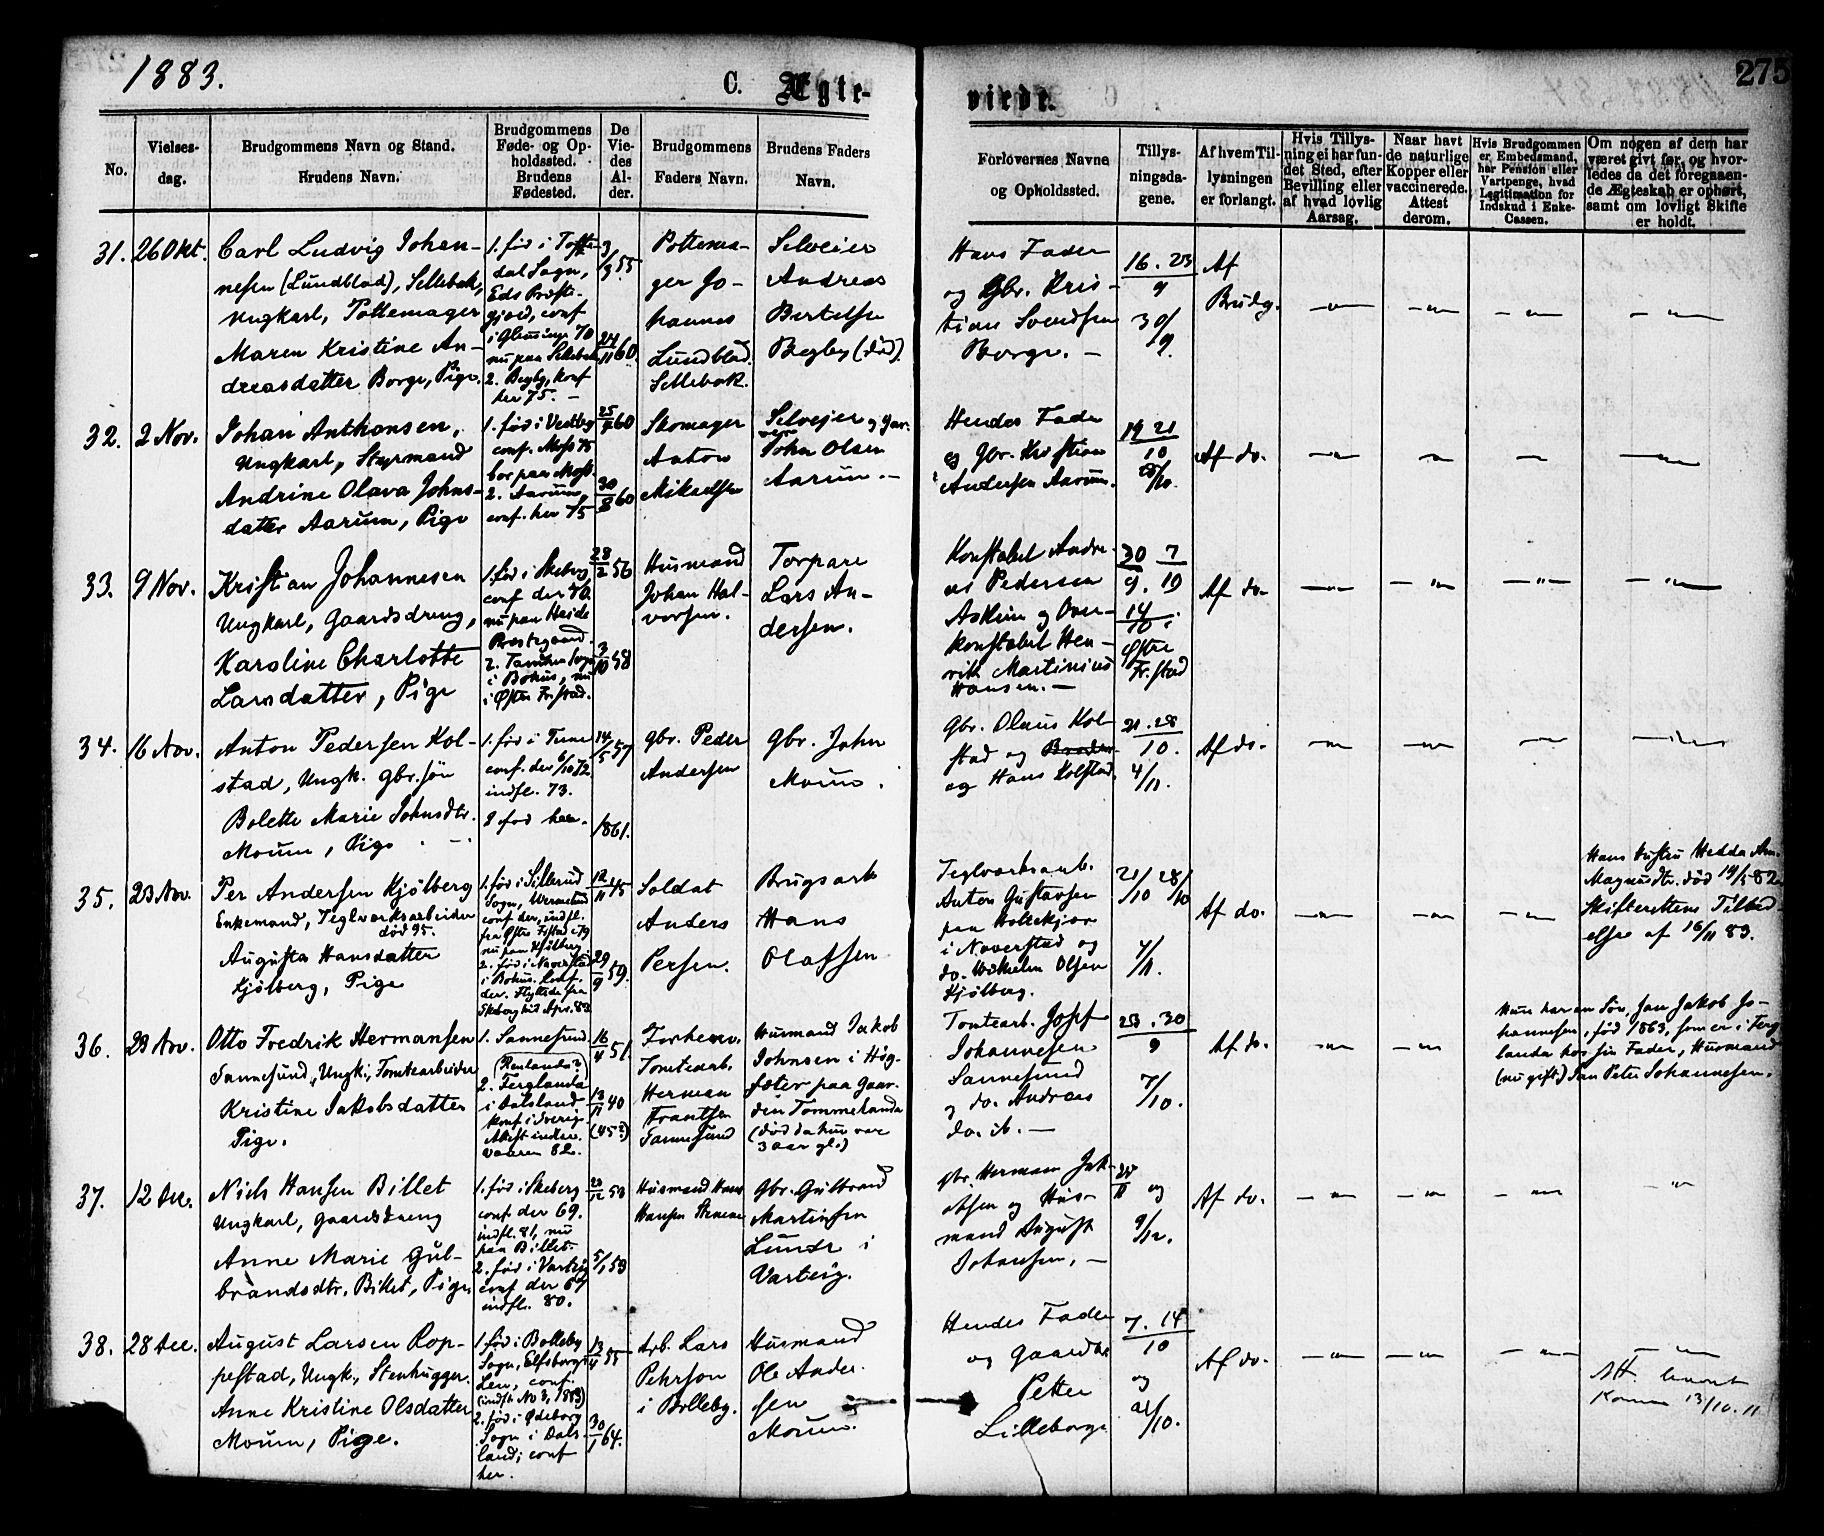 1883.
C. Ægte-
virde.
275
No.
Vielses-
dag.
Brudgommens Navn og Stand.
Brudens Navn.
Brudgommens
Føde- og Op-
holdssted.
Brudens
Fødested.
De
Vie-
des
Al-
der.
Brudgommens
Faders Navn.
Brudens Faders
Navn.
Forlovernes Navne
og Opholdssted.
Tillys-
ningsda-
gene.
Af hvem Til-
lysningen
er forlangt.
Hvis Tillys-
ning ei har fun-
det Sted, efter
Bevilling eller
af hvad lovlig
Aarsag.
Naar havt
de naturlige
Kopper eller
vaccinerede.
Attest
derom.
Hvis Brudgommen
er Embedsmand,
har Pension eller
Vartpenge, hvad
Legitimation for
Indskud i Enke-
Cassen.
Om nogen af dem har
været givt før, og hvor-
ledes da det foregaaen-
de Ægteskab er ophørt,
samt om lovligt Skifte
er holdt.
31.
26 Okt.
Carl Ludvig Johan-
nesen (Lundblad), Sellebak,
Ungkarl, Pottemager
Maren Kristine An-
dreasdatter Borge, Pige.
1. fød i
dal Sogn,
Eds Præste-
gjeld, conf
i Glemminge 70
nu paa Sellebak
2. Begby, konf
her 75. -
9/3 55
24/11 60
Pottema-
ger Jo-
hannes
Lundblad
Sellebak.
Selveier
Andreas
Bertelsen
Begby (død).
Hans Fader
og Gbr. Kris-
tian Svendsen
Borge. -
16. 23
9
30/
9.
Af
Brudg.
32.
2 Nov.
Johan Anthonsen,
Ungkarl, Styrmand
Andrine Olava Johns-
datter Aarum, Pige
1. fød i Vestby
conf. Moss 75
bor paa Moss.
2. Aarum,
conf. her 75
60
30/8 60
Skomager
Anton
Mikaelsen
Selvejer og Gaar-
John Olsen
Aarum. -
Hendes Fader
og Gbr. Kristian
Andersen Aarum.
14 21
10
28/10.
Af do.
33.
9 Nov.
Kristian Johannesen
Ungkarl, Gaardsdreng,
Karoline Charlotte
Larsdatter, Pige
1. fød i Skeberg
conf der 70.
nu paa Heide
Præstegaard.
2. Tanum Sogn
i Bohus, nu
i Østre Fr.stad.
28/2 56
3/10 58
Husmand
Johan Hal-
vorsen.
Torpare
Lars An-
dersen.
Konstabel Andre-
as Pedersen
Askim og Over-
konstabel Hen-
rik Martinius
Hansen. -
30 7
9. 10
14/10 i
Østre
Fr.stad
Af do.
34.
16 Nov.
Anton Pedersen Kol-
stad, Ungk. Gbr.søn
Bolette Marie Johnsdtr.
Moum, Pige
1. fød i Tune
conf. der 6/10 72
indfl. 73.
2 fød her.
14/5 57
1861.
Gbr. Peder
Andersen
Gbr. John
Moum.
Gbr. Olaus Kol-
stad og
og Hans Kolstad.
21. 28
10.
4/11.
Af do.
35.
23 Nov.
Per Andersen Kjølberg
Enkemand, Teglværksarbeider
død 95.
Augusta Hansdatter
Kjølberg, Pige
1. fød i Sillerud
Sogn, Wermeland
conf der, indfl.
fra Østre Fr.stad i 79
nu paa Kjølberg
2. fød i Naverstad
i Bohus. Conf.
der. Flyttede fra
Skeberg hid Apr. 83
12/11 45
29/9 59.
Soldat
Anders
Persen.
Brugsarb
Hans
Olafsen
Teglværksarb.
Anton Gustavsen
paa
i Naverstad og
do. Wilhelm Olsen
Kjølberg.
21/10 28/10
4/11.
Af do.
Hans Hustru Hedda Am.
Magnusdtr. død 19/5 82
Skifterettens Tilled
else af 16/11 83.
36.
23 Nov.
Otto Fredrik Hermansen
Sannesund, Ungk., Tomtearbeider
Kristine Jakobsdatter
Pige.
1. Sannesund
2. Ferglanda
i Dalsland
konf i Sverig
Attest inden
vaaren 82.
16/4 51
13/11 40
(45?)
Tomtearb.
Herman
Frantsen
Sannesund
Husmand Jakob
Johnsen i Høg-
sæter paa Gaar-
den Tommelanda
(død da hun var
3 aar gl.)
Tomtearb. Josef
Johannesen
Sannesund
og do. Andreas
do. ib. -
23. 30
9
7/10.
Af do.
Hun har en Søn, Jan Jakob Jo-
hannesen, fød 1863, som er i Ferg
landa hos sin Fader, Husmand
(nu gift) Jan Peter Johannesen.
37.
12 Dec.
Niels Hansen Billet
Ungkarl, Gaardsdreng
Anne Marie Gul-
brandsdtr. Billet, Pige
1. fød i Skeberg
conf der 69.
indfl. 81, nu
paa Billet.
2. fød i Varteig
conf der 67
indfl. 80.
53
5/1 53
Husmand Hans
Hansen
Gbr. Gulbrand
Martinsen
Lunde i
Varteig.
Gbr. Herman Jak-
obsen og Hus-
mand August
Johansen. -
25/11 og
9/12.
Af do.
38.
28 Dec.
August Larsen Rop-
pestad, Ungk., Stenhugger.
Anne Kristine Olsdatter
Moum, Pige.
1. fød i Bolleby
Sogn, Elfsborgs
Len, conf.
(indfl. No 3, 1883)
2. fød i Ødeborg
Sogn i Dals-
land; conf
her.
13/4 55
30/1 64.
Arb. Lars
Pehrson
i Bolleby.
Husmand
Ole Ander-
sen
Moum.
Hendes Fader
og Gaardbr.
Petter
Lilleborge
7. 14
10
og
21/10.
Af do.
Att.
13/10. 11